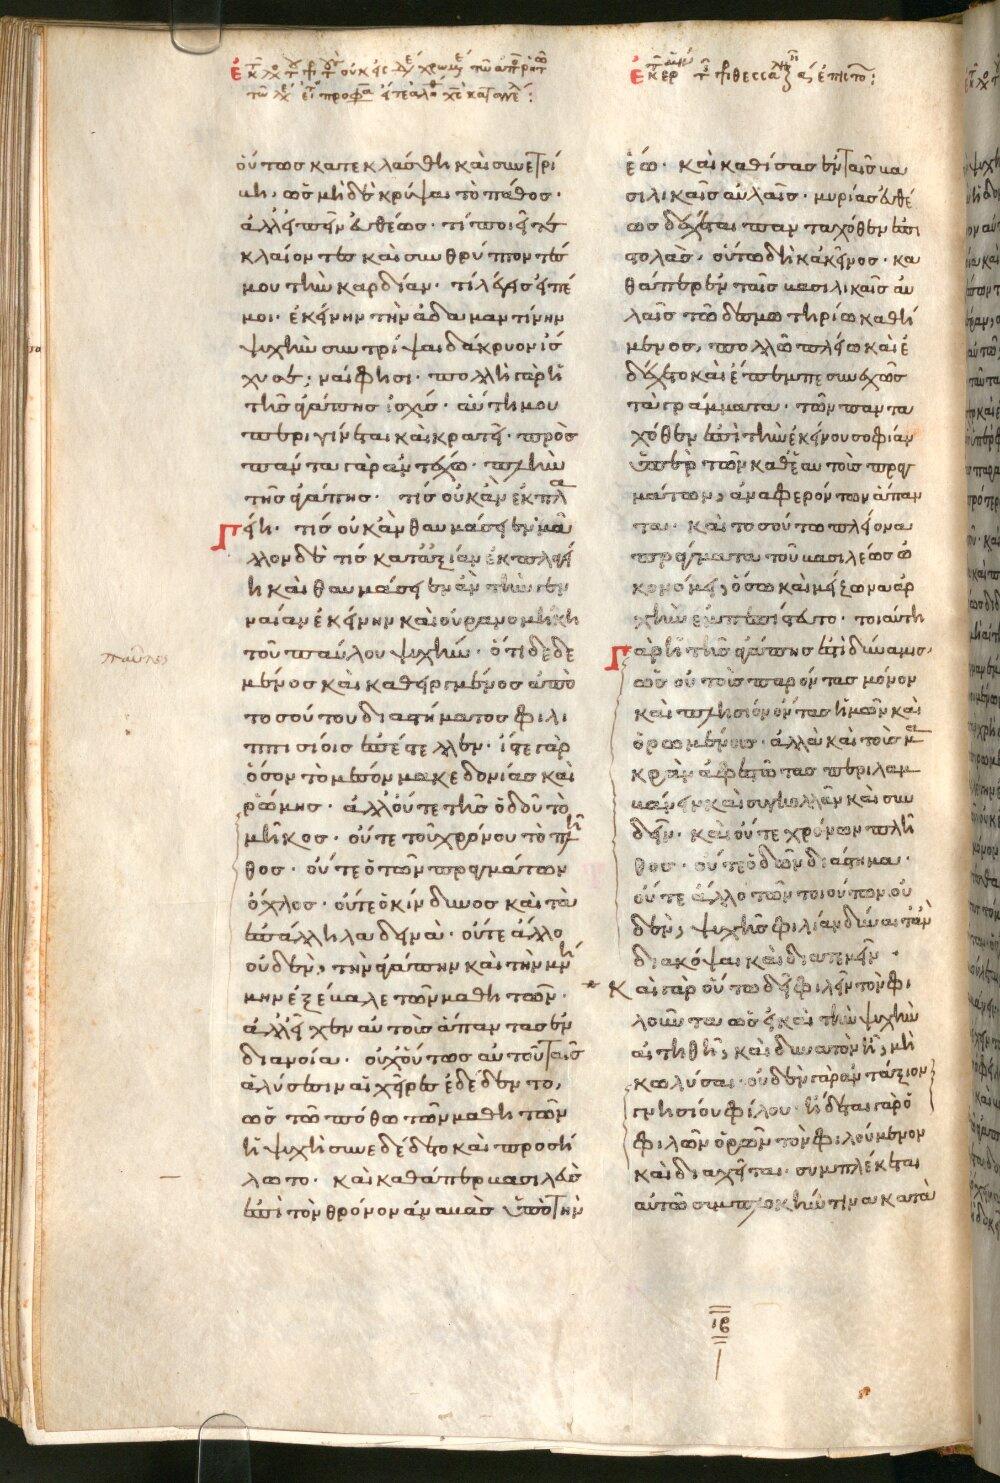 οὕτως κατεκλάσθη καὶ συνετρί
βη, ὡς μὴ δὲ κρύψαι τὸ πάθος·
ἀλλ' εἰπεῖν εὐθέως· τί ποιεῖτε
κλαίοντες καὶ συνθρύπτοντές
μου τὴν καρδίαν· τί λέγεις εἰπέ
μοι· ἐκείνην τὴν ἀδαμαντίνην
ψυχὴν συντρίψαι δάκρυον ἰσ
χυσε; ναί φησι· πολλὴ γὰρ ἡ
τῆς ἀγάπης ἰσχύς· αὕτη μου
περιγίνεται καὶ κρατεῖ· πρὸς
πάντα γὰρ ἀντέχω· πλὴν
τῆς ἀγάπης· τίς οὐκ ἂν ἐκπλα
γείη· τίς οὐκ ἂν θαυμάσειεν· μᾶ
λλον δὲ τίς κατ' ἀξίαν ἐκπλαγεί
η καὶ θαυμάσειεν ἂν τὴν γεν
ναίαν ἐκείνην καὶ οὐρανομήκη
τοῦ παύλου ψυχήν· ὅτι δεδε
μένος καὶ καθειργμένος ἀπὸ
τοσούτου διαστήματος φιλι
ππισίοις ἐπέστελλεν· ἴστε γὰρ
ὅσον τὸ μέσον μακεδονίας καὶ
ῥώμης· ἀλλ' οὔτε τῆς ὁδοῦ τὸ
μῆκος· οὔτε τοῦ χρόνου τὸ πλῆ
θος· οὔτε ὁ τῶν πραγμάτων
ὄχλος· οὔτε ὁ κίνδυνος καὶ τὰ
ἐπάλληλα δεινά· οὔτε ἄλλο
οὐδέν, τὴν ἀγάπην καὶ τὴν μνή
μην ἐξέβαλε τῶν μαθητῶν·
ἀλλ' εἶχεν αὐτοὺς ἅπαντας ἐν
διανοία· οὐχ οὕτως αὐτοῦ ταῖς
ἁλύσεσιν αἱ χεῖρες ἐδέδεντο,
ὡς τῶ πόθω τῶν μαθητῶν
ἡ ψυχὴ συνεδέδετο καὶ προσή
λωτο· καὶ καθάπερ βασιλεὺς
ἐπὶ τὸν θρόνον ἀναβὰς ὑπὸ τὴν
ἕω· καὶ καθίσας ἐν ταῖς βα
σιλικαῖς αὐλαῖς· μυρίας εὐθέ
ως δέχεται πανταχόθεν ἐπι
στολάς· οὕτω δὴ κἀκεῖνος· κα
θάπερ ἐν ταῖς βασιλικαῖς αὐ
λαῖς τῶ δεσμωτηρίω καθή
μενος, πολλῶ πλείω καὶ ἐ
δέχετο καὶ ἔπεμπε συνεχῶς
τὰ γράμματα· τῶν παντα
χόθεν ἐπὶ τὴν ἐκείνου σοφίαν
ὑπὲρ τῶν καθ' ἑαυτοὺς πραγ
μάτων, ἀναφερόντων ἅπαν
τα· καὶ τοσούτω πλείονα
πράγματα τοῦ βασιλέως ὠ
κονόμει, ὅσω καὶ μείζωνα ἀρ
χὴν ἐμπεπίστευτο· τοιαύτη
γὰρ ἡ τῆς ἀγάπης ἐστὶ δύναμις,
ὡς οὐ τοὺς παρόντας μόνον
καὶ πλησίον ὄντας ἡμῶν καὶ
ὁρωμένους· ἀλλὰ καὶ τοὺς μα
κρὰν ἀφεστῶτας περιλαμ
βάνειν καὶ συγκολλᾶν καὶ συν
δεῖν· καὶ οὔτε χρόνων πλῆ
θος· οὔτε ὁδῶν διάστημα·
οὔτε ἄλλο τῶν τοιούτων οὐ
δέν, ψυχῆς φιλίαν δύναιτ' ἂν
διακόψαι καὶ διατεμεῖν·
Καὶ γὰρ οὕτω δεῖ φιλεῖν τὸν φι
λοῦντα ὡς εἰ καὶ τὴν ψυχὴν
αἰτηθῆ, καὶ δυνατὸν ἦ, μὴ
κωλύσαι· οὐδὲν γὰρ ἀντάξιον
γνησίου φίλου· ἥδεται γὰρ ὁ
φιλῶν ὁρῶν τὸν φιλούμενον
καὶ διαχεῖται· συμπλέκεται
αὐτῶ συμπλοκήν τινα κατὰ